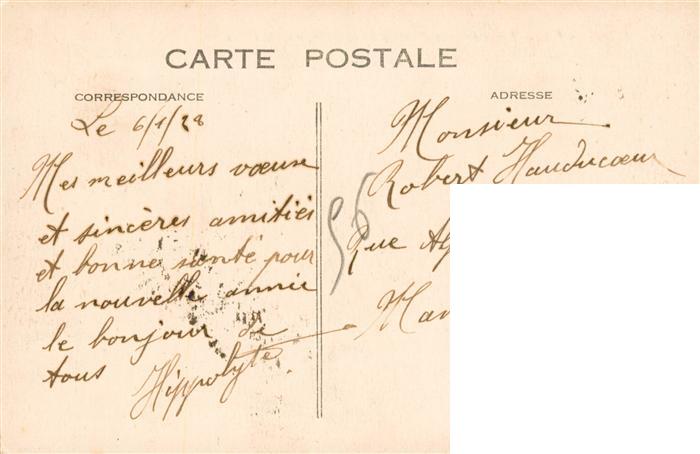 CARTE POSTALE
CORRESPONDANCE
Le 6/1/28
Mes meilleurs voeux
et sincères amitiés
et bonne santé pour
la nouvelle année
le bonjour de
tous Hippolyte.
56
ADRESSE
Monsieur
Robert Hauducoeur
Rue